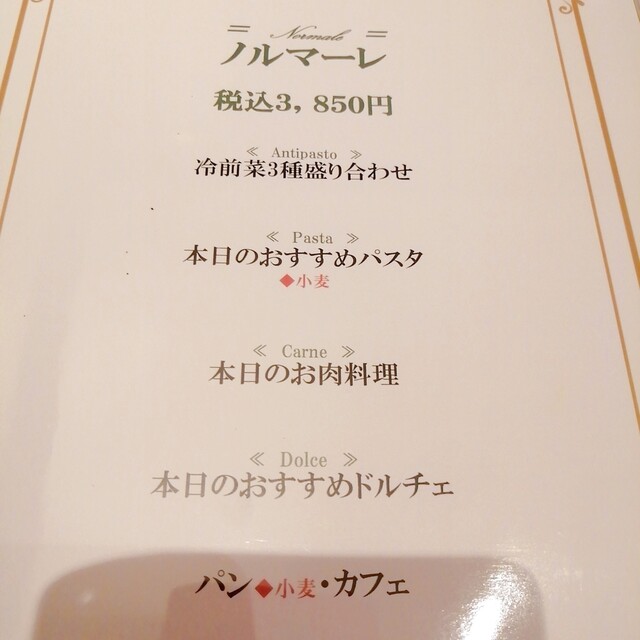 = Normale =
ノルマーレ
税込3,850円
≪ Antipasto ≫
冷前菜3種盛り合わせ
≪ Pasta ≫
本日のおすすめパスタ
◆小麦
≪ Carne ≫
本日のお肉料理
≪ Dolce ≫
本日のおすすめドルチェ
パン◆小麦・カフェ